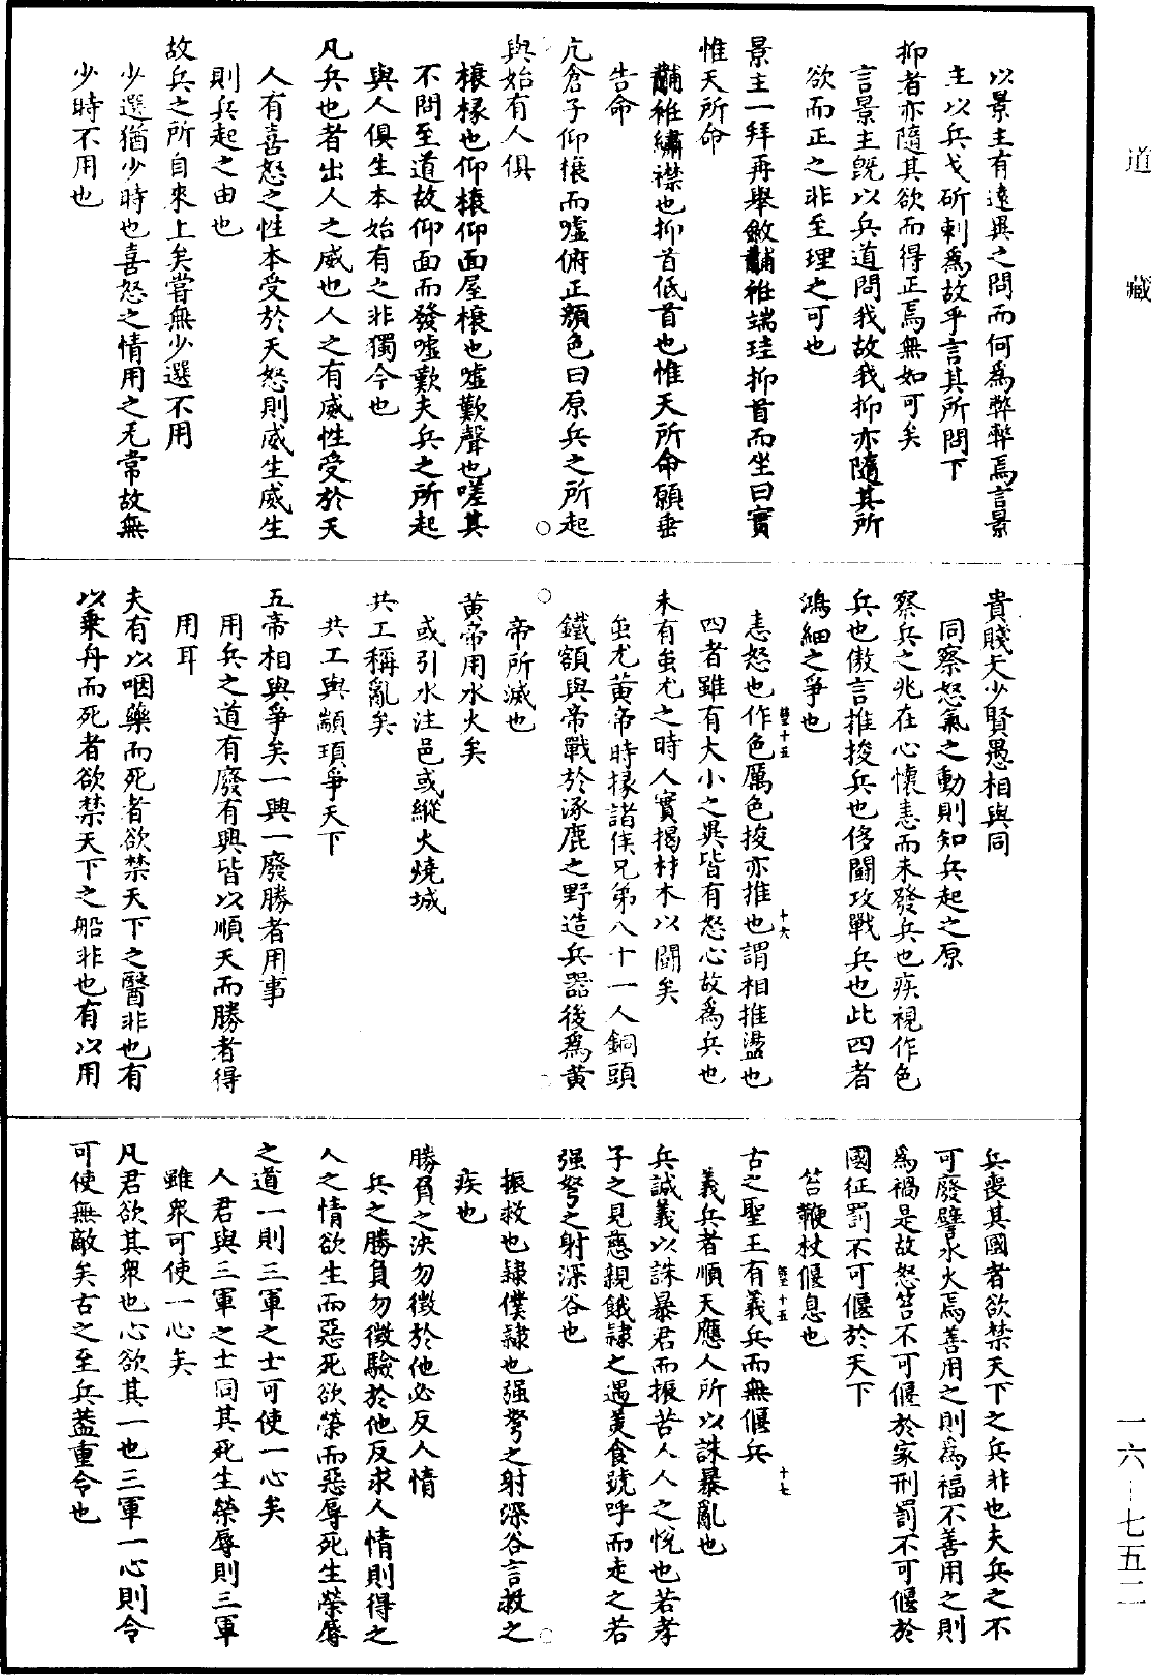 道藏
以景主有遠異之問而何爲弊弊焉言景
主以兵戈斫刺爲故乎言其所問下
抑者亦隨其欲而得正焉無如可矣
言景主旣以兵道問我故我抑亦隨其所
欲而正之非至理之可也
景主一拜再舉斂黼袵端珪抑首而坐曰實
惟天所命
黼袵繡襟也抑首低首也惟天所命願垂
告命
亢倉子仰榱而噓俯正顏色曰原兵之所起
與始有人俱
榱椽也仰榱仰面屋榱也噓歎聲也嗟其
不問至道故仰面而發噓歎夫兵之所起
與人俱生本始有之非獨今也
凡兵也者出人之威也人之有威性受於天
人有喜怒之性本受於天怒則威生威生
則兵起之由也
故兵之所自來上矣嘗無少選不用
少選猶少時也喜怒之情用之无常故無
少時不用也
貴賤夭少賢愚相與同
同察怒氣之動則知兵起之原
察兵之兆在心懷恚而未發兵也疾視作色
兵也傲言推捘兵也侈鬭攻戰兵也此四者
鴻細之爭也
恚怒也作色厲色捘亦推也謂相推盪也
四者雖有大小之異皆有怒心故爲兵也
未有蚩尤之時人實揭材木以鬭矣
蚩尤黃帝時掾諸侯兄弟八十一人銅頭
鐵額與帝戰於涿鹿之野造兵器後爲黃
帝所滅也
黃帝用水火矣
或引水注邑或縱火燒城
共工稱亂矣
共工與顓頊爭天下
五帝相與爭矣一興一廢勝者用事
用兵之道有廢有興皆以順天而勝者得
用耳
夫有以咽藥而死者欲禁天下之醫非也有
以乘舟而死者欲禁天下之船非也有以用
兵喪其國者欲禁天下之兵非也夫兵之不
可廢譬水火焉善用之則爲福不善用之則
爲禍是故怒笞不可偃於家刑罰不可偃於
國征罰不可偃於天下
笞鞭杖偃息也
古之聖王有義兵而無偃兵
義兵者順天應人所以誅暴亂也
兵誠義以誅暴君而振苦人人之悅也若孝
子之見慈親餓隸之遇美食號呼而走之若
强弩之射深谷也
振救也隸僕隸也强弩之射深谷言救之
疾也
勝負之決勿徵於他必反人情
兵之勝負勿徵驗於他反求人情則得之
人之情欲生而惡死欲榮而惡辱死生榮辱
之道一則三軍之士可使一心矣
人君與三軍之士同其死生榮辱則三軍
雖衆可使一心矣
凡君欲其衆也心欲其一也三軍一心則令
可使無敵矣古之至兵葢重令也
一六—七五二